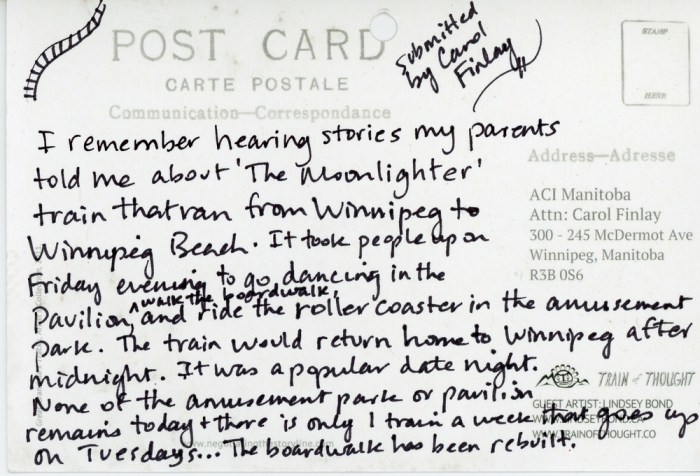 POST CARD
CARTE POSTALE
Communication—Correspondance
submitted
by Carol
Finlay
STAMP
HERE
I remember hearing stories my parents
told me about 'The Moonlighter'
train that ran from Winnipeg to
Winnipeg Beach. It took people up on
Friday evening to go dancing in the
Pavilion, walk the boardwalk, and ride the roller coaster in the amusement
park. The train would return home to Winnipeg after
midnight. It was a popular date night.
None of the amusement park or pavilion
remains today + there is only 1 train a week that goes up
on Tuesdays... The boardwalk has been rebuilt.
Address—Adresse
ACI Manitoba
Attn: Carol Finlay
300 - 245 McDermot Ave
Winnipeg, Manitoba
R3B 0S6
TRAIN of THOUGHT
GUEST ARTIST: LINDSEY BOND
WWW.LINDSEYBOND.CA
WWW.TRAINOFTHOUGHT.CO